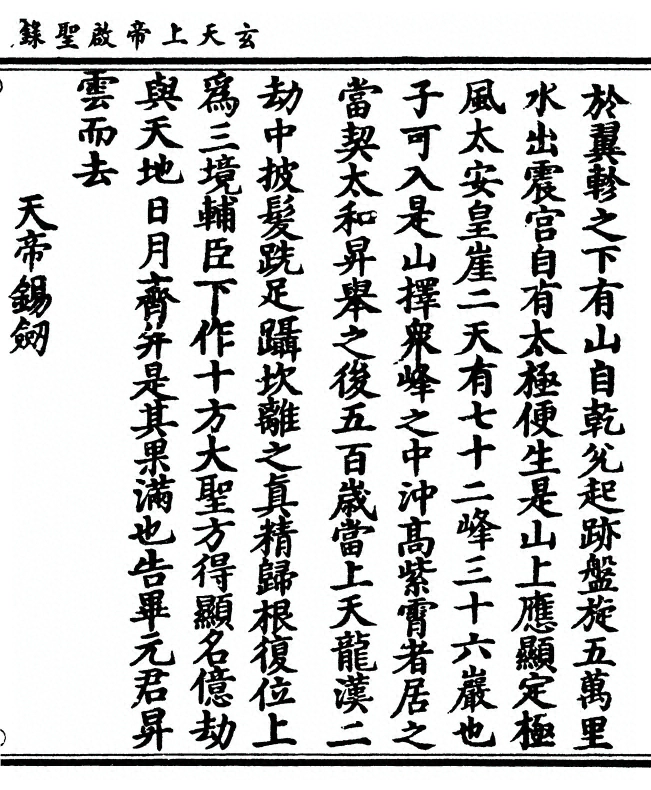 玄天上帝啟聖錄
於翼軫之下有山自乾兊起跡盤旋五萬里
水出震宫自有太極便生是山上應顯定極
風太安皇崖二天有七十二峰三十六巖也
子可入是山擇衆峰之中沖高紫霄者居之
當契太和昇舉之後五百歲當上天龍漢二
劫中披髮跣足躡坎離之真精歸根復位上
爲三境輔臣下作十方大聖方得顯名億劫
與天地日月齊并是其果滿也告畢元君昇
雲而去
天帝錫劔